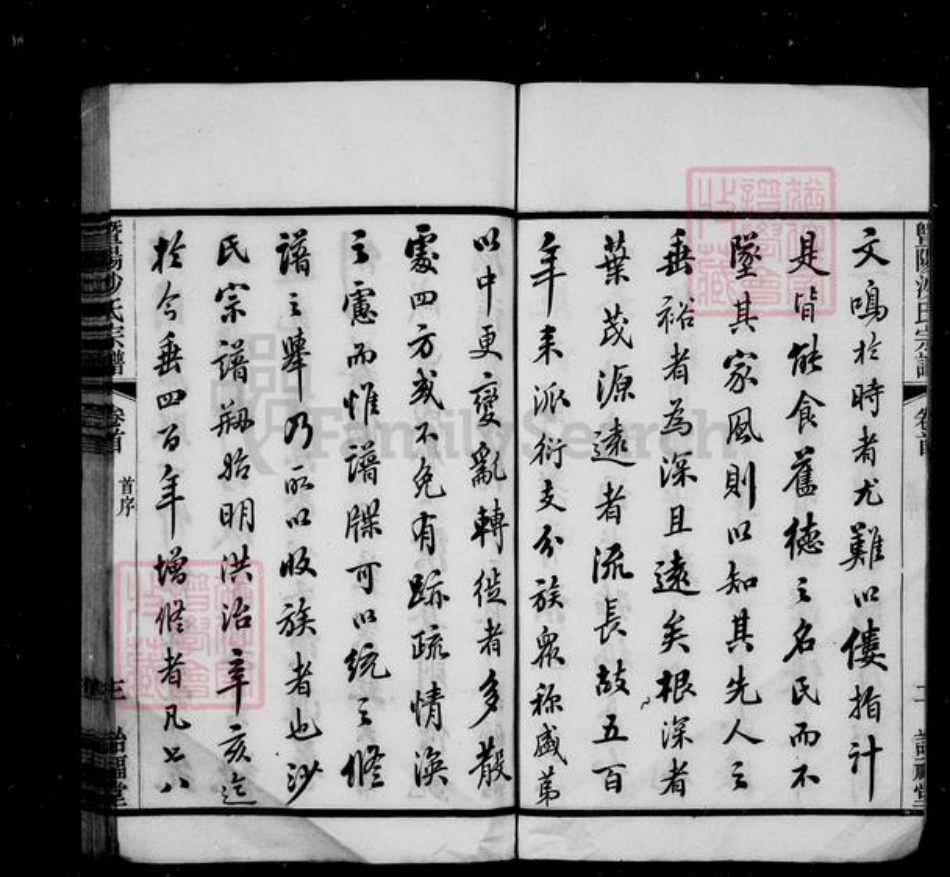 文鳴於時者尤難以僂指計
是皆能食舊德之名民而不
墜其家風則以知其先人之
垂裕者為深且遠矣根深者
葉茂源遠者流長故五百
年来派衍支分族眾称盛第
暨陽沙氏宗譜
卷首
二
以中更變亂轉徙者多散
處四方或不免有跡疏情渙
之慮而惟譜牒可以統之修
譜之舉乃所以收族者也沙
氏宗譜刱始明洪治辛亥迄
於今垂四百年增修者凡七八
暨陽沙氏宗譜
卷首
首序
三
詒福堂
FamilySearch